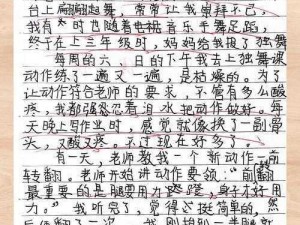 台上翩翩起舞，常常让我崇拜不已，
我有时也随着电视音乐手舞足蹈，
终于在上三年级时，妈妈给我报了独舞
每周的六、日的下午我去上独舞课
动作练了一遍又一遍，是枯燥的。为了
让动作符合老师的要求，不管有多么酸
疼，我都强忍着泪水把动作做好。每
天晚上写作业时，感觉就像换了一副骨
头，又酸又疼。不过现在好多了。
有一天，老师教我一个新动作—前
转翻。老师开始讲动作要领：“前翻
最重要的是腿要用力蹬，身子才好用
力。”我听完了，觉得还挺简单的，然